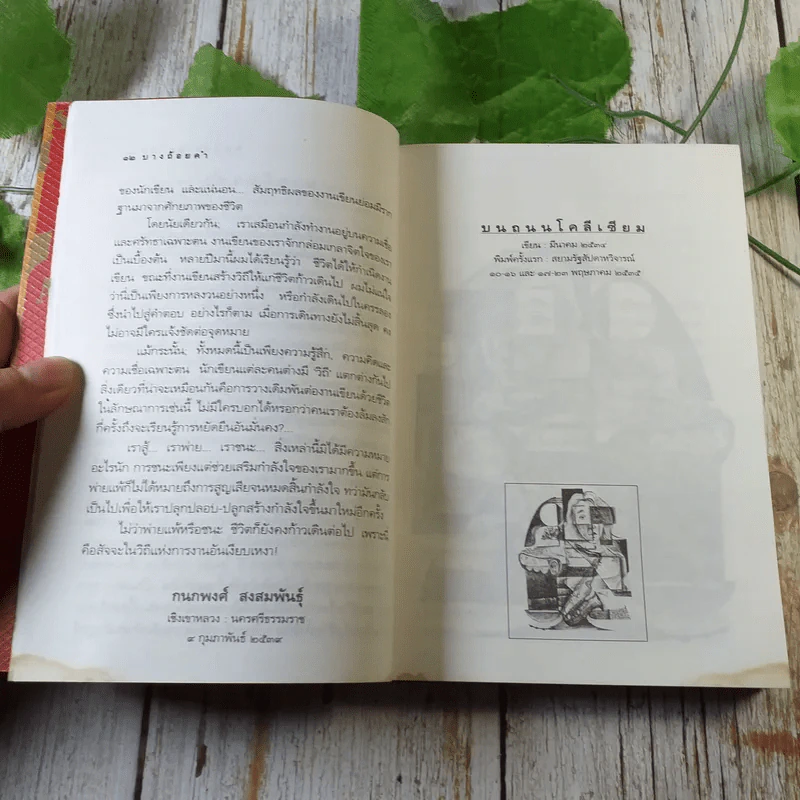 ๑๒ บางถ้อยคำ
ของนักเขียน และแน่นอน... สัมฤทธิผลของงานเขียนย่อมมีราก
ฐานมาจากศักยภาพของชีวิต
โดยนัยเดียวกัน; เราเสมือนกำลังทำงานอยู่บนความเชื่อ
และศรัทธาเฉพาะตน งานเขียนของเราจักกล่อมเกลาจิตใจของเรา
เป็นเบื้องต้น หลายปีมานี้ผมได้เรียนรู้ว่า ชีวิตได้ให้กำเนิดงาน
เขียน ขณะที่งานเขียนสร้างวิถีให้แก่ชีวิตก้าวเดินไป ผมไม่แน่ใจ
ว่านี้เป็นเพียงการหลงวนอย่างหนึ่ง หรือกำลังเดินไปในครรลอง
ซึ่งนำไปสู่คำตอบ อย่างไรก็ตาม เมื่อการเดินทางยังไม่สิ้นสุด คง
ไม่อาจมีใครแจ้งชัดต่อจุดหมาย
แม้กระนั้น; ทั้งหมดนี้เป็นเพียงความรู้สึก, ความคิดและ
ความเชื่อเฉพาะตน นักเขียนแต่ละคนต่างมี 'วิถี' แตกต่างกันไป
สิ่งเดียวที่น่าจะเหมือนกันคือการวางเดิมพันต่องานเขียนด้วยชีวิต
ในลักษณาการเช่นนี้ ไม่มีใครบอกได้หรอกว่าคนเราต้องล้มลงสัก
กี่ครั้งถึงจะเรียนรู้การหยัดยืนอันมั่นคง?...
เราสู้... เราพ่าย... เราชนะ... สิ่งเหล่านี้มิได้มีความหมาย
อะไรนัก การชนะเพียงแต่ช่วยเสริมกำลังใจของเรามากขึ้น แต่การ
พ่ายแพ้ก็ไม่ได้หมายถึงการสูญเสียจนหมดสิ้นกำลังใจ ทว่ามันกลับ
เป็นไปเพื่อให้เราปลุกปลอบ-ปลูกสร้างกำลังใจขึ้นมาใหม่อีกครั้ง
ไม่ว่าพ่ายแพ้หรือชนะ ชีวิตก็ยังคงก้าวเดินต่อไป เพราะนี่
คือสัจจะในวิถีแห่งการงานอันเงียบเหงา!
กนกพงศ์ สงสมพันธุ์
เชิงเขาหลวง : นครศรีธรรมราช
๙ กุมภาพันธ์ ๒๕๓๙
บนถนนโคลีเซียม
เขียน : มีนาคม ๒๕๓๔
พิมพ์ครั้งแรก : สยามรัฐสัปดาหวิจารณ์
๑๐-๑๖ และ ๑๗-๒๓ พฤษภาคม ๒๕๓๕